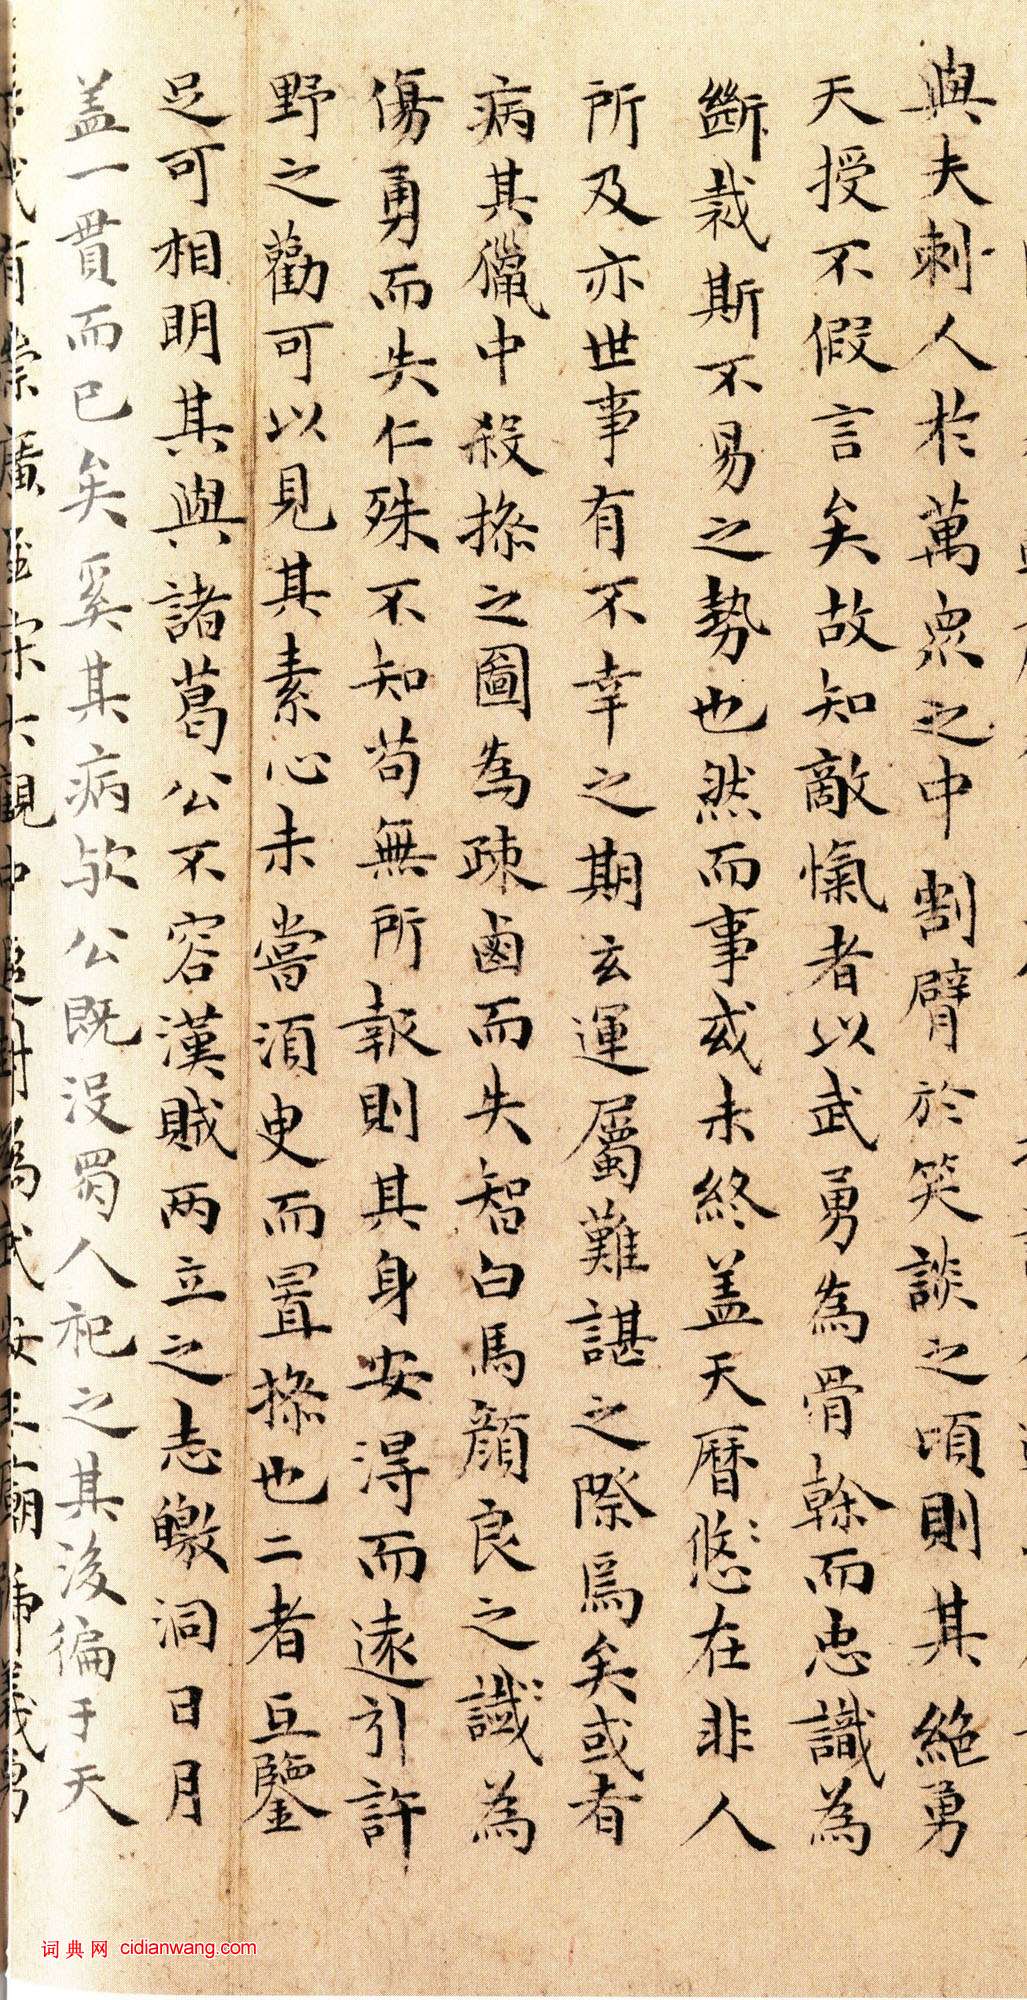 與夫刺人於萬衆之中割臂於笑談之頃則其絶勇
天授不假言矣故知敵愾者以武勇為骨榦而忠識為
斷裁斯不易之勢也然而事或未終盖天曆悠〻在非人
所及亦世事有不幸之期玄運屬難諶之際焉矣或者
病其獵中殺操之圖為疎鹵而失智白馬顔良之誠為
傷勇而失仁殊不知苟無所報則其身安得而遠引許
野之勸可以見其素心未嘗須臾而置操也二者互鑒
足可相明其與諸葛公不容漢賊两立之志皦洞日月
盖一貫而已矣奚其病歟公既没蜀人祀之其後徧于天
有崇廣至宋大觀中追封為武安王廟號義勇
词典网 cidianwang.com